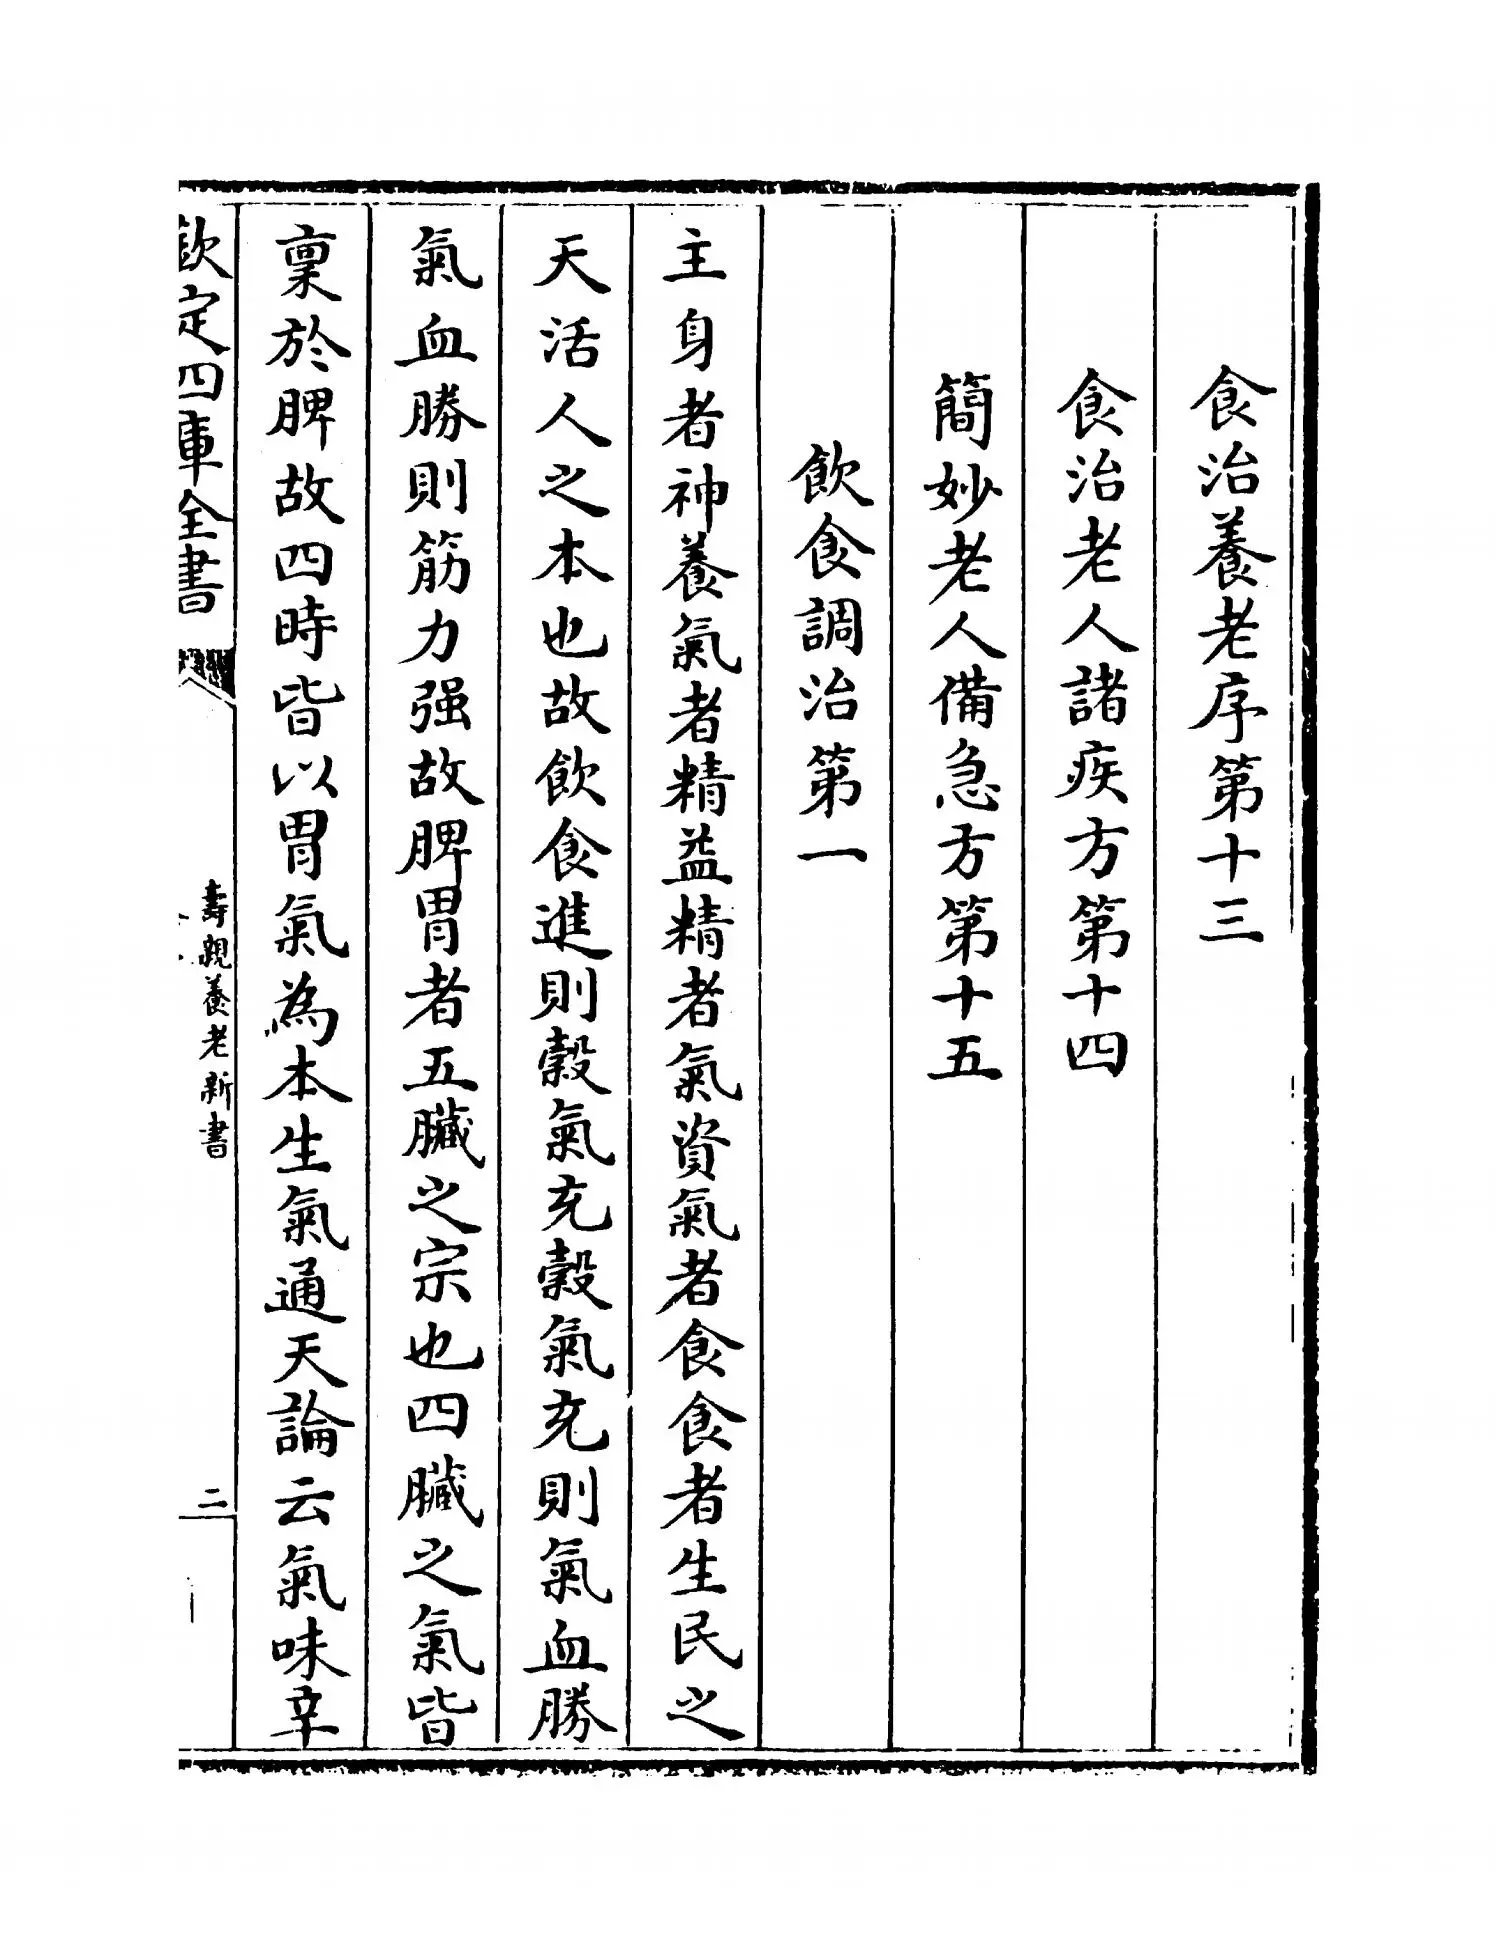 食治養老序第十三
食治老人諸疾方第十四
簡妙老人備急方第十五
飲食調治第一
主身者神養氣者精益精者氣資氣者食食者生民之
天活人之本也故飲食進則穀氣充穀氣充則氣血勝
氣血勝則筋力强故脾胃者五臟之宗也四臟之氣皆
稟於脾故四時皆以胃氣為本生氣通天論云氣味辛
欽定四庫全書
壽親養老新書
二